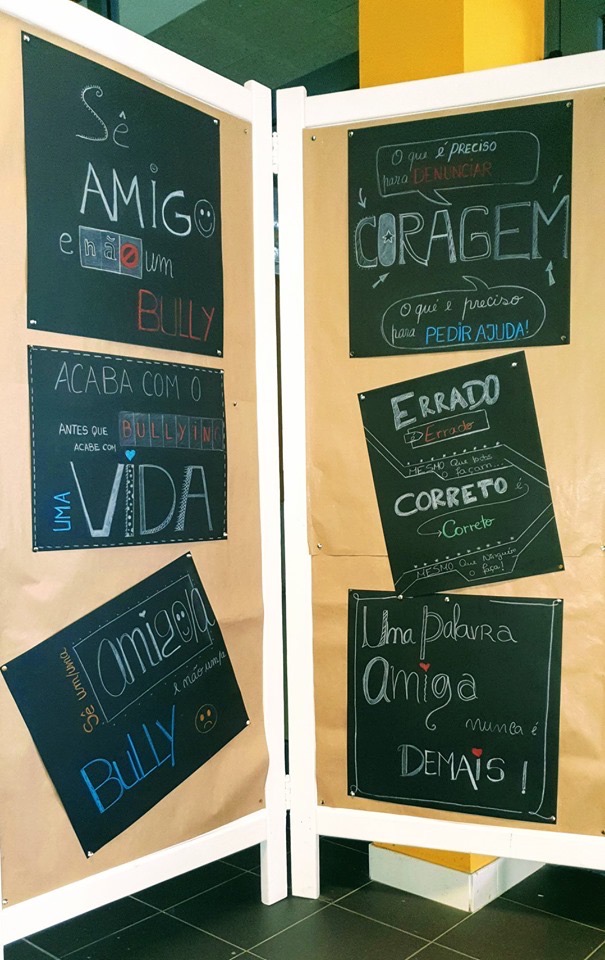 Sê
AMIGO
e não um
BULLY
ACABA COM O
ANTES QUE BULLYING
ACABE COM
UMA VIDA
Sê um/uma
amigo/a
e não um/a
BULLY
O que é PRECISO
para DENUNCIAR
CORAGEM
O que é preciso
para PEDIR AJUDA!
ERRADO
é Errado
MESMO Que todos
o façam...
CORRETO é
Correto
MESMO Que Ninguém
o faça!
Uma palavra
Amiga
nunca é
DEMAIS!